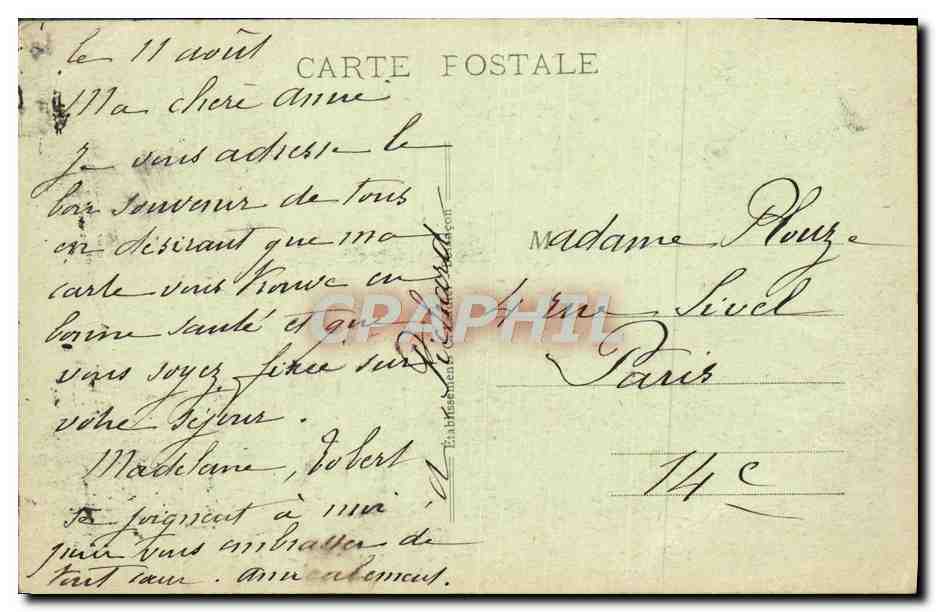 le 11 août
CARTE POSTALE
Ma chère Annie
Je vous adresse le
bon souvenir de tous
en désirant que ma
carte vous trouve en
bonne santé et que
vous soyez fixée sur
votre séjour.
Madelaine, Robert
se joignent à moi
pour vous embrasser de
tout cœur. Amicalement.
Établissements
Madame Plouze
4 rue Sivel
Paris
14e
CPAPHIL